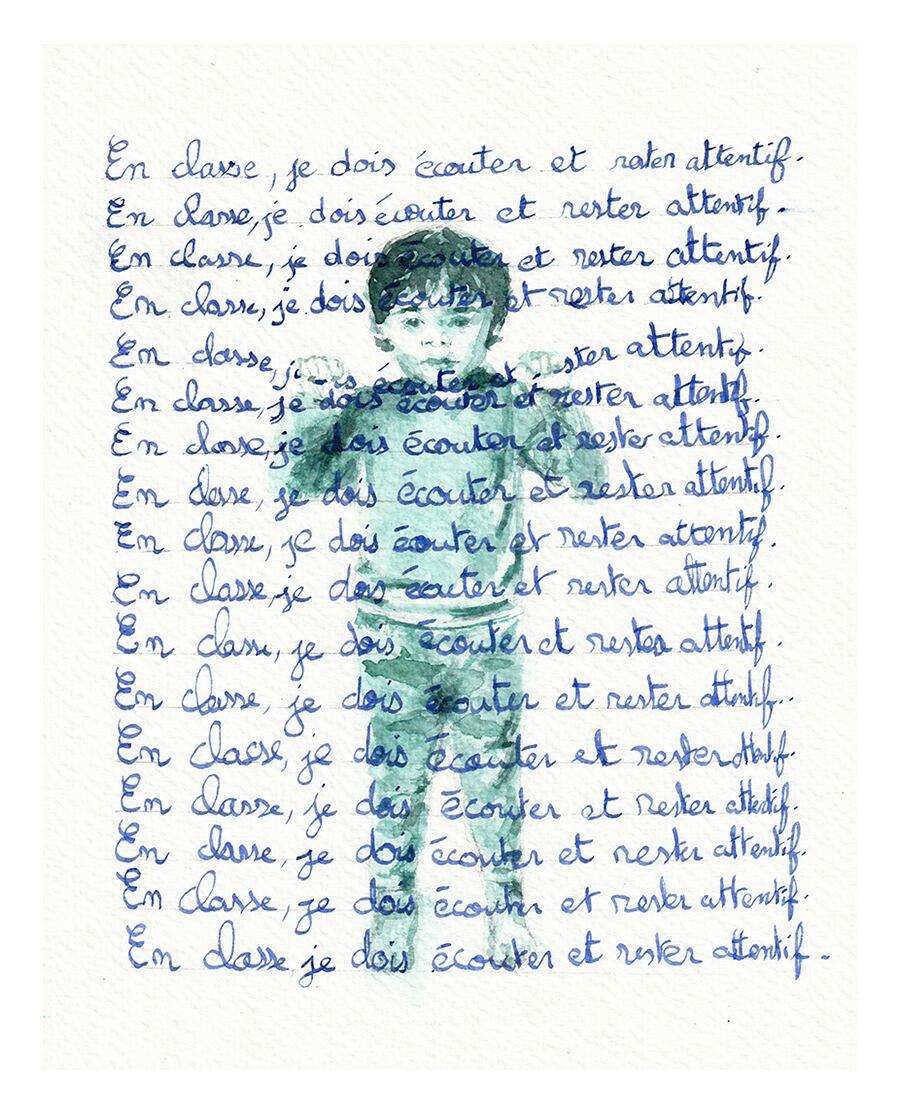 En classe, je dois écouter et rester attentif.
En classe, je dois écouter et rester attentif.
En classe, je dois écouter et rester attentif.
En classe, je dois écouter et rester attentif.
En classe, écouter et attentif.
En classe, je dois écouter et rester attentif.
En classe, je dois écouter et rester attentif.
En classe, je dois écouter et rester attentif.
En classe, je dois écouter et rester attentif.
En classe, je dois écouter et rester attentif.
En classe, je dois écouter et rester attentif.
En classe, je dois écouter et rester attentif..
En classe, je dois écouter et rester attentif.
En classe, je dois écouter et rester attentif.
En classe, je dois écouter et rester attentif.
En classe, je dois écouter et rester attentif.
En classe je dois écouter et rester attentif.